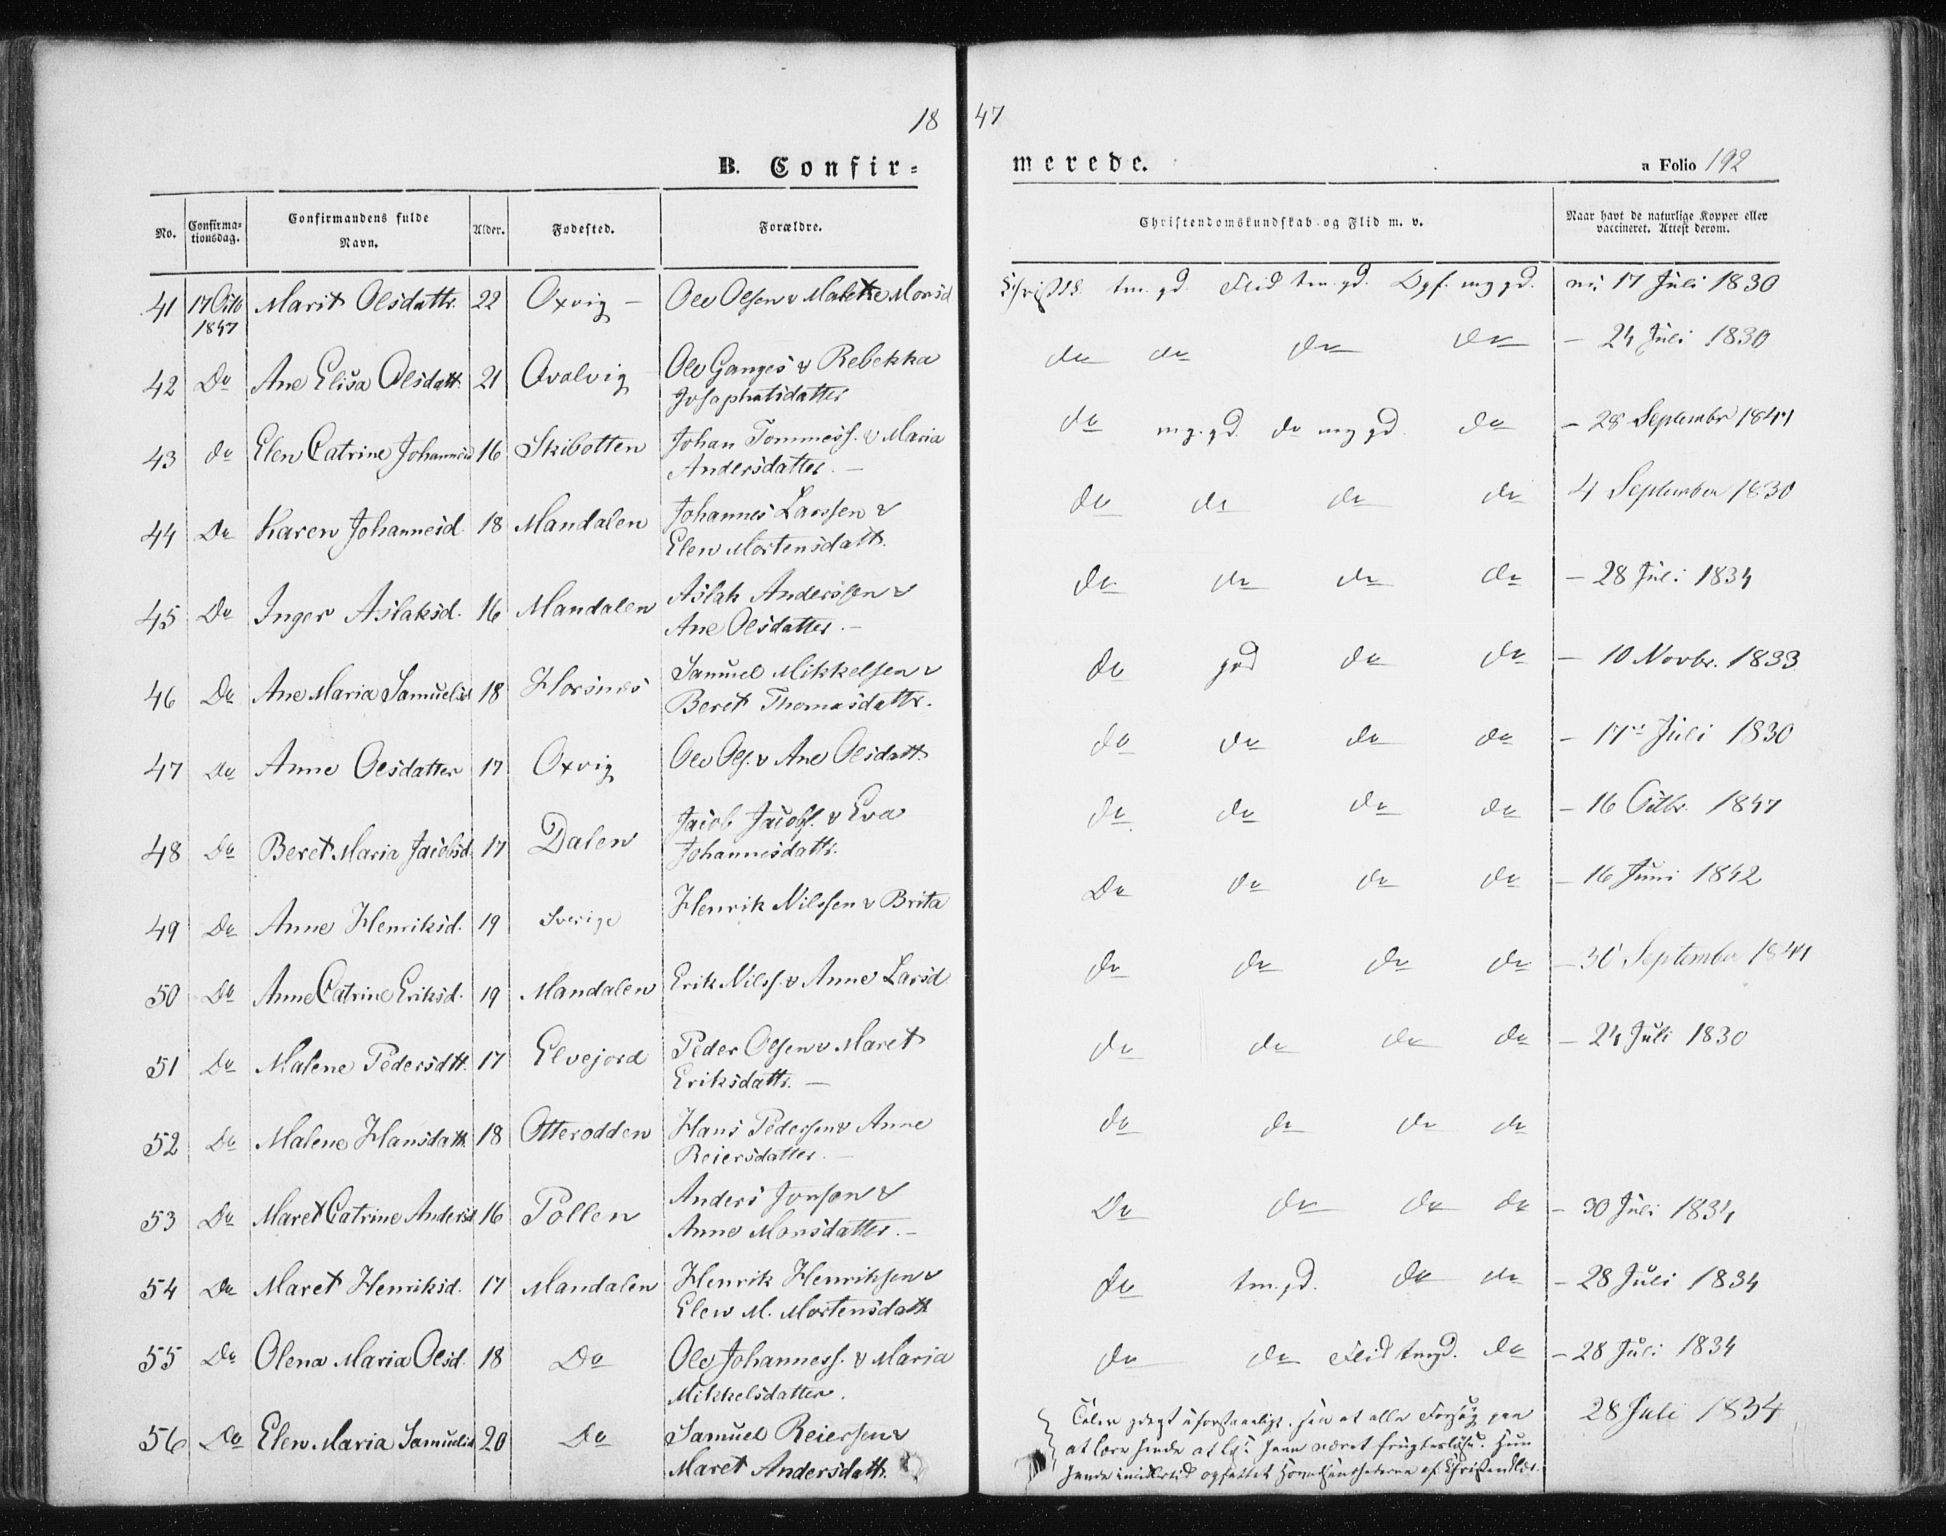 18 47
B. Confir=
merede.
a Folio 192
No.
Confirma=
tionsdag.
Confirmandens fulde
Navn.
Alder.
Fødested.
Forældre.
Christendomskundskab og Flid m. v.
Naar havt de naturlige Kopper eller
vaccineret. Attest derom.
41 17 Octb Marit Olsdattr. 22 Oxvig – Ole Olsen & Malethe Monsd Christdk tm. gd. Flid tm. gd. Opf. mg gd. 17 Juli 1830
1847
42 Do Ane Elisa Olsdatt. 21 Qvalvig Ole Ganges & Rebekka do do do do – 24 Juli 1830
Josaphatsdatter
43 do Elen Catrine Johannesd 16 Skibotten Johan Tommess. & Maria do mg. gd. do mg gd. do – 28 Septembr 1844
Andersdatter. –
44 Do Karen Johannesd. 18 Mandalen Johannes Larssen & do do do do 4 September 1830
Elen Mortensdatt.
45 Do Inger Aslaksd. 16 Mandalen Aslak Anderssen & do do do do – 28 Juli 1834
Ane Olsdatter. –
46 Do Ane Maria Samuelsd 18 Horsnes Samuel Mikkelsen & do god do do – 10 Novbr. 1833
Beret Thomasdattr.
47 do Anne Olsdatter 17 Oxvig Ole Ols. & Ane Olsdatt. do do do do – 17 Juli 1830
48 Do Beret Maria Jacobsd. 17 Dalen Jacob Jacobs. & Eva do do do do – 16 Octbr. 1847
Johannesdattr.
49 Do Anne Henriksd. 19 Sverige Henrik Nilssen & Brita Do do do do – 16 Juni 1842
50 Do Anne Catrine Eriksd. 19 Mandalen Erik Nilss. & Anne Larsd do do do do – 30 September 1844
51 Do Malene Pedersdtt. 17 Elvejord Peder Olsen & Maret do do do do – 24 Juli 1830
Eriksdattr. –
52 Do Malene Hansdatt. 18 Otterodden Hans Pederssen & Anne do do do do
Reiersdatter. –
53 Do Maret Catrine Andersd 16 Pollen Anders Jonsen & Do do do do – 30 Juli 1834
Anne Monsdatter. –
54 Do Maret Henriksd. 17 Mandalen Henrik Henriksen & do tm. gd. do do – 28 Juli 1834
Elen M. Mortensdatt
55 Do Olena Maria Olsd. 18 Do Ole Johanness. & Maria do do Flid tmgd. do – 28 Juli 1834
Mikkelsdatter.
56 Do Elen Maria Samuelsd 20 Do Samuel Reierssen & Taler uforstaaeligt. alle Forsøg paa 28 Juli 1834
Maret Andersdattr. at lære hende at været frugtesløse. Hun
imidlertid opfattet af Christendom.